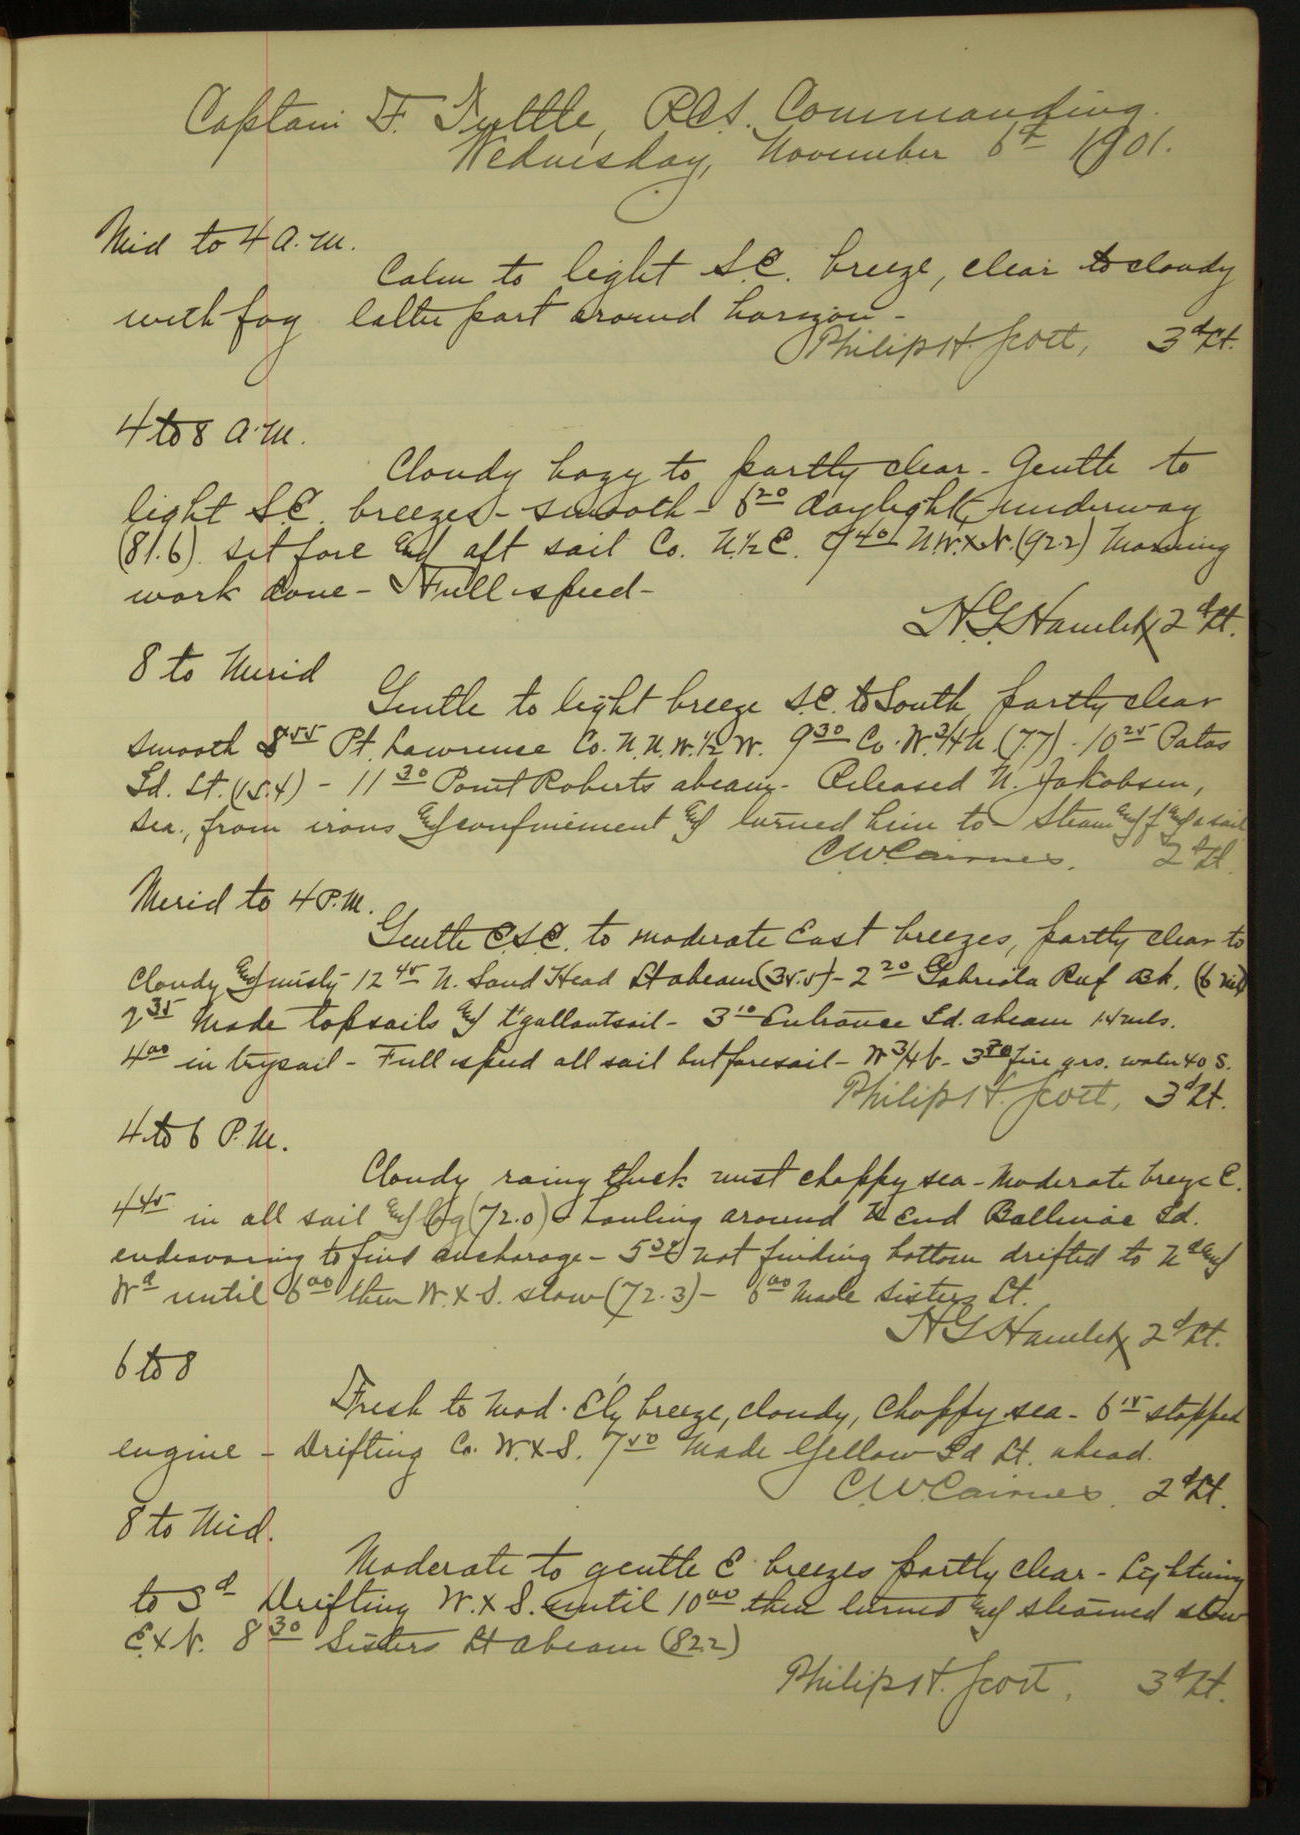 Captain F. Tuttle, R.C.S. Commanding.
Wednesday, November 6th 1901.
Mid to 4 a.m.
Calm to light S.E. breeze, clear to cloudy
with fog latter part around horizon -
Philip H. Scott, 3d Lt.
4 to 8 a.m.
Cloudy hazy to partly clear - Gentle to
light S.E. breezes - smooth - 6 20 daylight, underway
(81.6) set fore and aft sail Co. N. 1/2 E. 40 N.W. x N. (92.2) Morning
work done - Full speed -
H G Hamlet 2d Lt.
8 to Merid
Gentle to light breeze S.E. to South partly clear
smooth 8 55 Pt. Lawrence Co. N.N.W. 1/2 W. 9 30 Co. W. 3/4 N. (7.7) - 10 25 Patos
Id. Lt. (15.4) - 11 30 Point Roberts abeam - Released N. Jakobsen,
Sea., from irons and confinement and turned him to - Steam and f and a sail
C.W. Cairnes. 2d Lt.
Merid to 4 P.M.
Gentle E.S.E. to moderate East breezes, partly clear to
cloudy and misty - 12 45 N. Sand Head Lt abeam (35.5) - 2 20 Gabriola Reef Bk.
2 35 Made topsails and t'gallantsail - 3 10 Entrance Id. abeam 1.4 mls.
4 00 in trysail - Full speed all sail but foresail - W 3/4 - 3 fire qrs. water 40 S.
Philip H. Scott, 3d Lt.
4 to 6 P.M.
Cloudy rainy thick mist choppy sea - Moderate breeze E.
4 45 in all sail and log (72.0) - hauling around End Ballinac Id.
endeavoring to find anchorage - 5 not finding bottom drifted to Nd and
Wd until 6 00 then W. x S. slow (72.3) - 6 00 Made Sisters Lt.
H G Hamlet 2d Lt.
6 to 8
Fresh to Mod. E'ly breeze, cloudy, choppy sea - 6 15 stopped
engine - Drifting Co. W. x S. 7 50 Made Yellow Id Lt. ahead.
C.W. Cairnes. 2d Lt.
8 to Mid.
Moderate to gentle E breezes partly clear - Lightning
to Sd Drifting W. x S. until 10 00 then turned and steamed slow
E. x N. 8 30 Sisters Lt abeam (82.2)
Philip H. Scott, 3d Lt.